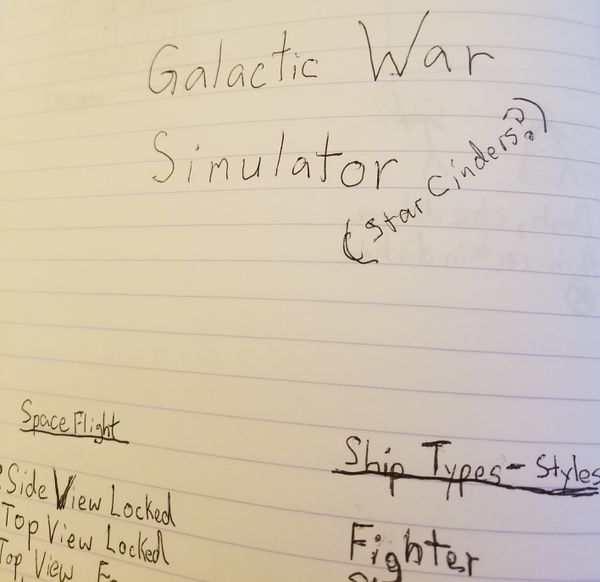 Galactic War
Simulator
(Star Cinders?)
Space Flight
Ship Types - Styles
Side View Locked
Top View Locked
Top View
Fighter